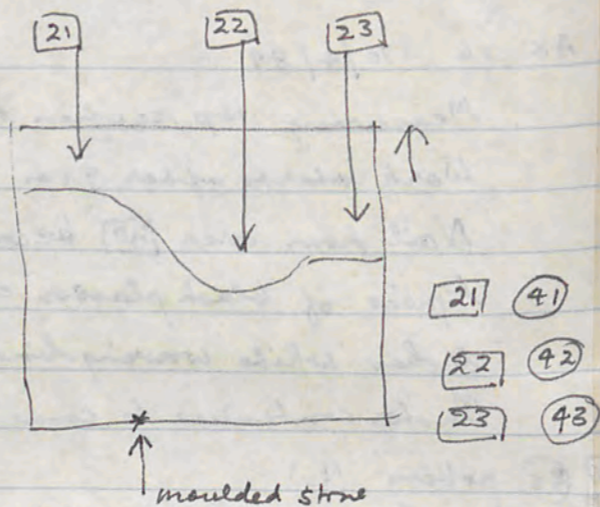 21 22 23
21 41
22 42
23 43
moulded stone